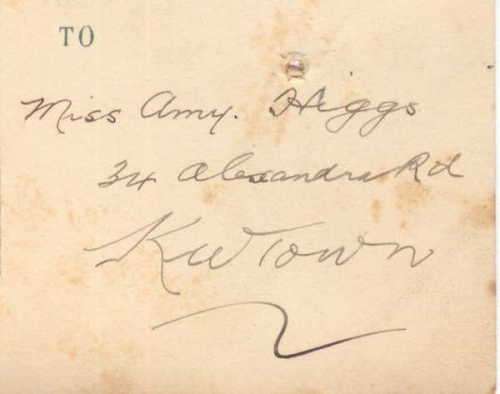 TO
Miss Amy. Higgs
34 Alexandra Rd
KWTown